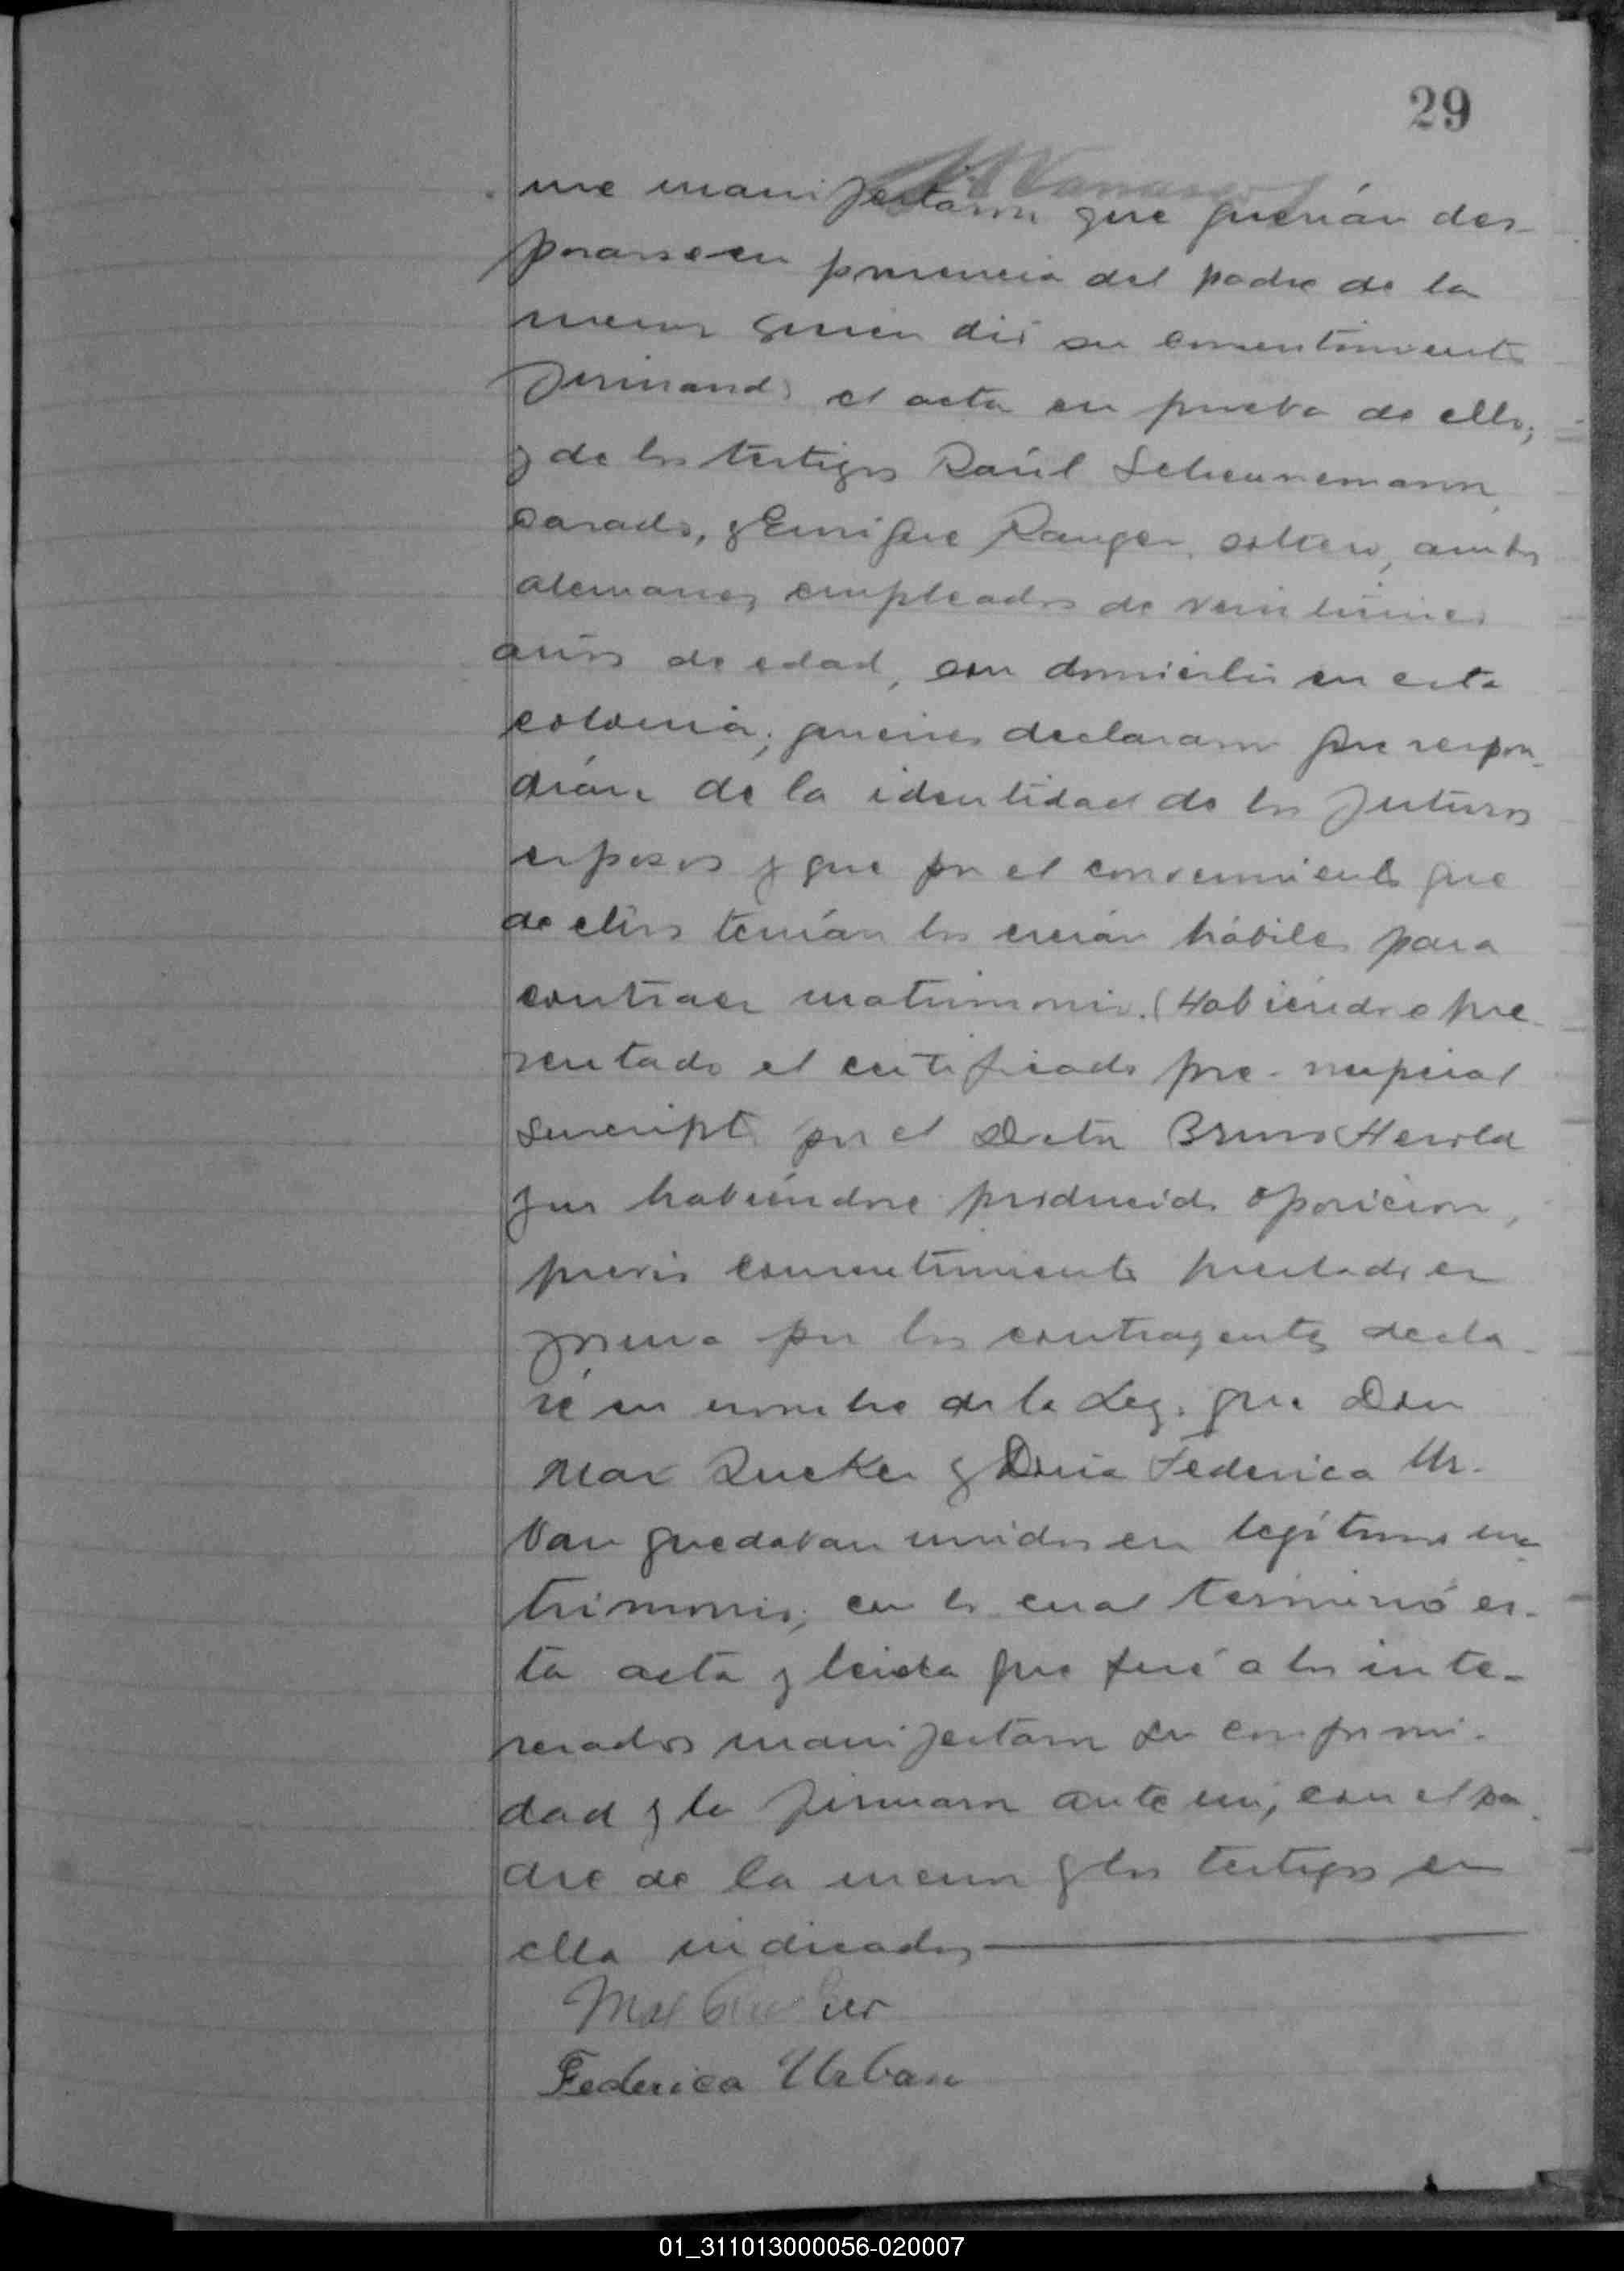 29
me manifestaron que querían des-
posarse en presencia del padre de la
menor quien dió su consentimiento
firmando el acta en prueba de ello;
y de los testigos Raúl Scheunemann
casado, y Enrique Ranger, soltero, ambos
alemanes, empleados de
años de edad, con domicilio en esta
colonia; quienes declararon que respon-
dían de la identidad de los futuros
esposos y que por el conocimiento que
de ellos tenían los creían hábiles para
contraer matrimonio. (Habiéndose pre-
sentado el certificado pre-nupcial
suscripto por el Doctor Bruno Herold
y no habiéndose producido oposicion,
previo consentimiento prestado en
forma por los contrayentes decla-
ré en nombre de la Ley, que Don
Max y Doña Federica Ur-
ban quedaban unidos en legítimo ma
trimonio; con lo cual terminó es-
ta acta y leida que fué a los inte-
resados manifestaron su conformi-
dad y la firmaron ante mi, con el pa-
dre de la menor y los testigos en
ella indicados
Max
Federica Urban
01_311013000056-020007